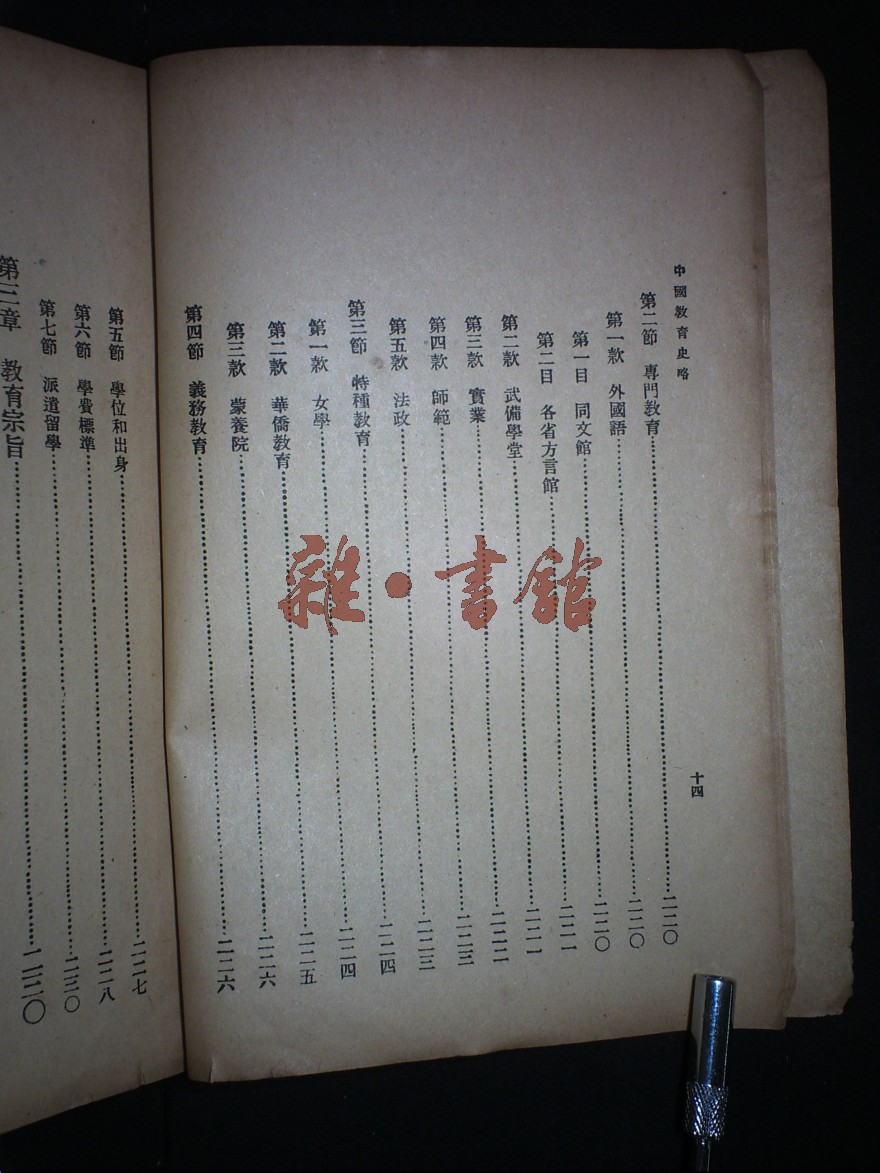 中國教育史略
十四
第二節 專門教育……二二〇
第一款 外國語……二二〇
第一目 同文館……二二〇
第二目 各省方言館……二二一
第二款 武備學堂……二二一
第三款 實業……二二二
第四款 師範……二二三
第五款 法政……二二三
第三節 特種教育……二二四
第一款 女學……二二四
第二款 華僑教育……二二五
第三款 蒙養院……二二六
第四節 義務教育……二二六
第五節 學位和出身……二二七
第六節 學費標準……二二八
第七節 派遣留學……二三〇
第三章 教育宗旨……二三〇
雜·書館